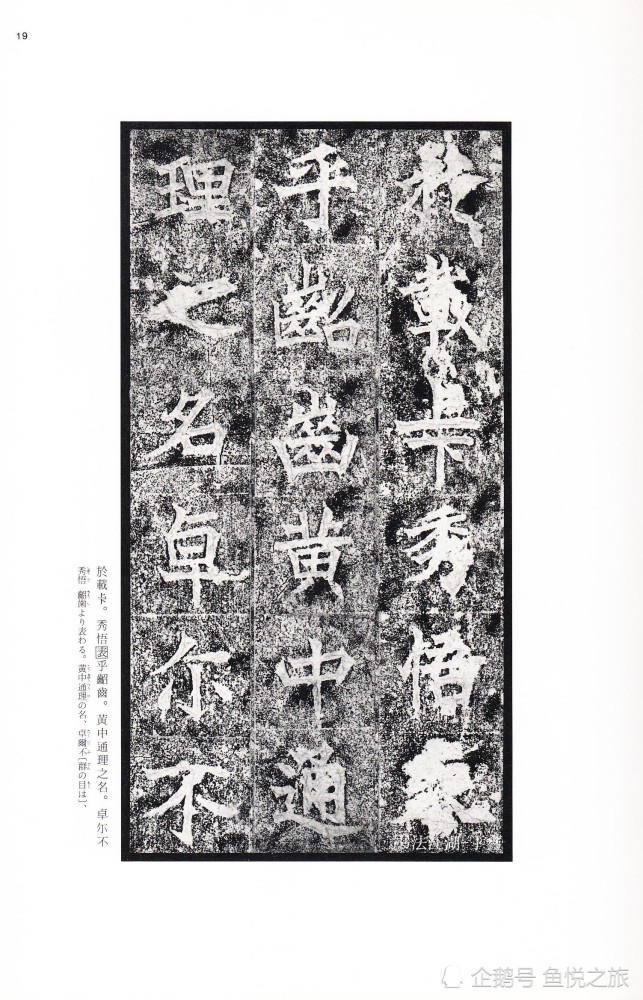 19
於載卡秀悟表
乎齠齒黃中通
理之名卓尓不
於載卡。秀悟表乎齠齒。黃中通理之名。卓尓不
秀悟 齠歯より表わる。黄中通理の名、卓爾不〔群の目は〕、
企鹅号 鱼悦之旅